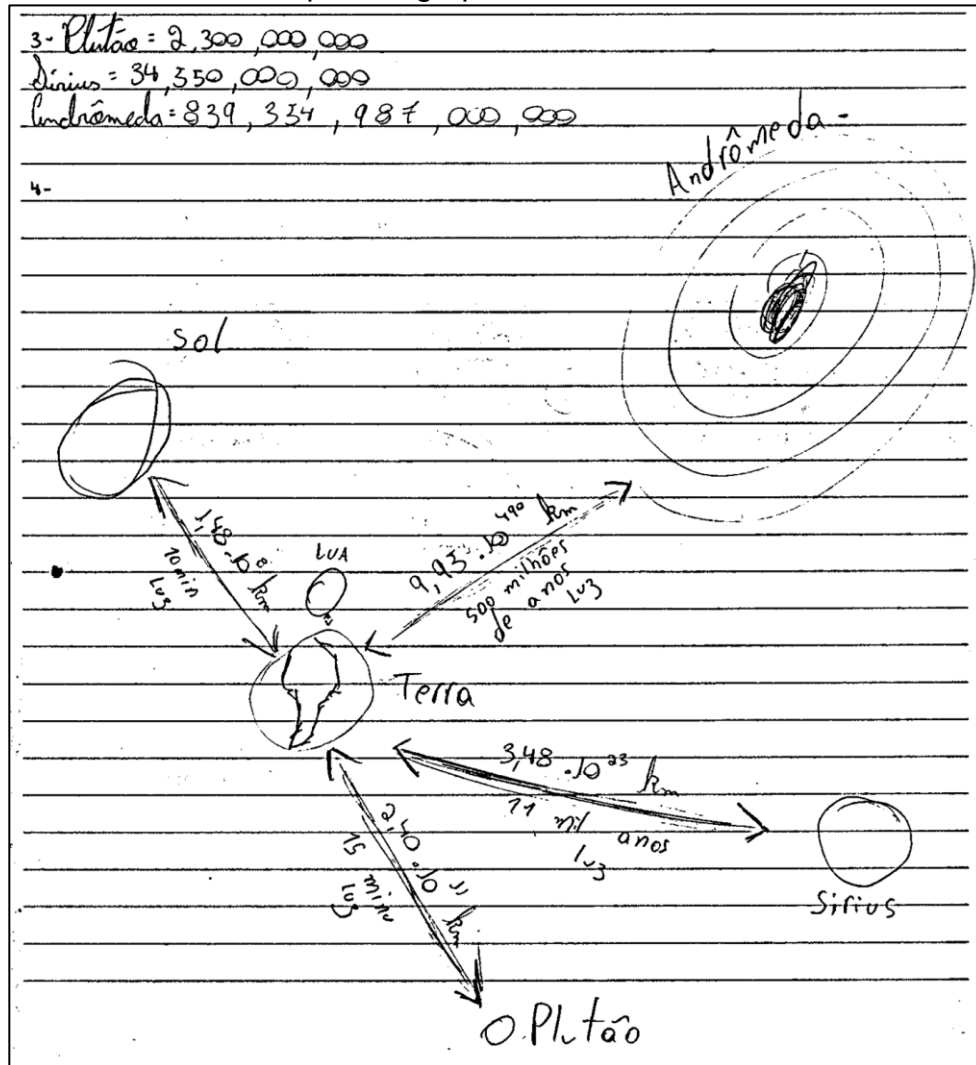 3- Plutão = 2,300,000,000
Sírius = 34,350,000,000
Andrômeda = 839,354,987,000,000
4-
Andrômeda -
Sol
1,48 . 10⁸ km
10 min
Luz
LUA
9,93 . 10⁴⁹⁰ km
500 milhões
de anos
Luz
Terra
3,48 . 10²³ km
11 mil anos
luz
Sirius
2,40 . 10¹¹ km
15 minu
luz
Plutão